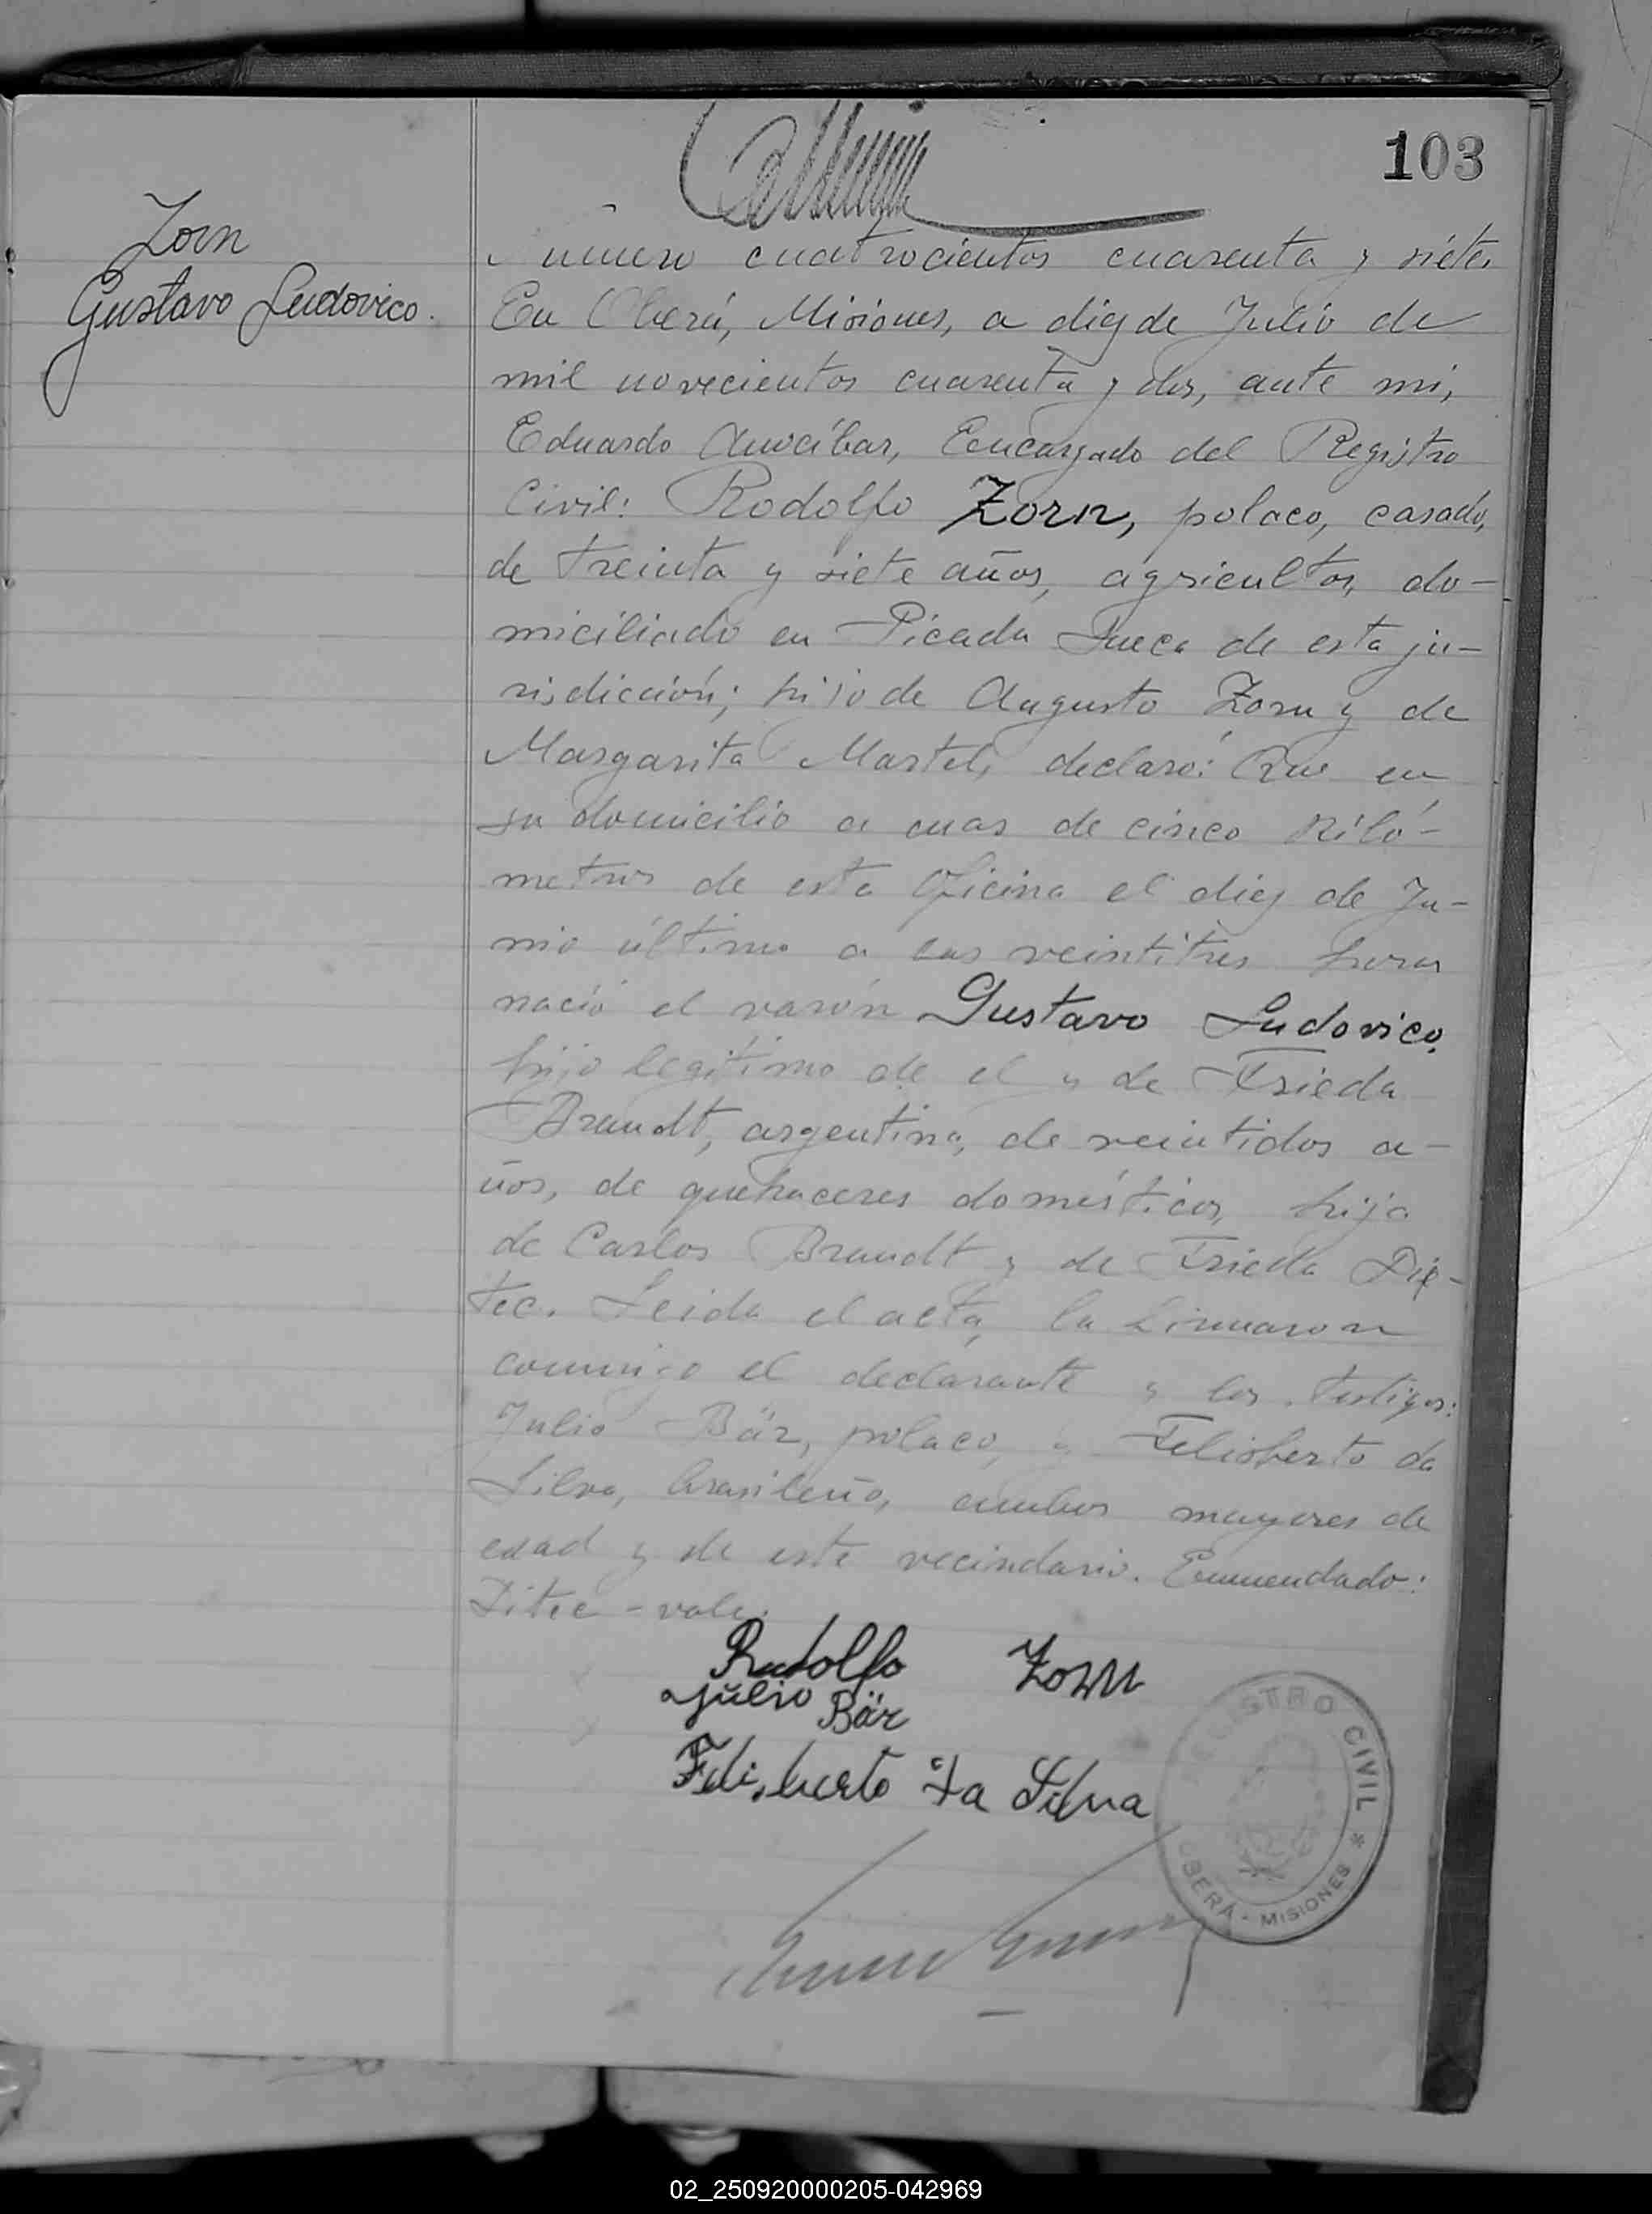 103
Zorn
Gustavo Ludovico.
Número cuatrocientos cuarenta y siete.
En Oberá, Misiones, a diez de Julio de
mil novecientos cuarenta y dos, ante mi,
Eduardo Amocíbar, Encargado del Registro
Civil: Rodolfo Zorn, polaco, casado,
de treinta y siete años, agricultor, do-
miciliado en Picada Sueca de esta ju-
risdicción; hijo de Augusto Zorn y de
Margarita Martel, declaró: Que en
su domicilio a mas de cinco kiló-
metros de esta Oficina el diez de Ju-
nio último a las veintitres horas
nació el varón Gustavo Ludovico,
hijo legitimo de el y de Frieda
Brandt, argentina, de veintidos a-
ños, de quehaceres domésticos, hija
de Carlos Brandt y de Frieda Die-
tec. Leida el acta, la firmaron
conmigo el declarante y los testigos:
Julio Bär, polaco, y Felisberto da
Silva, brasileño, ambos mayores de
edad y de este vecindario. Enmendado:
Ditec - vale.
Rudolfo Zorn
Julio Bär
Felisberto da Silva
REGISTRO CIVIL * OBERÁ - MISIONES
02_250920000205-042969